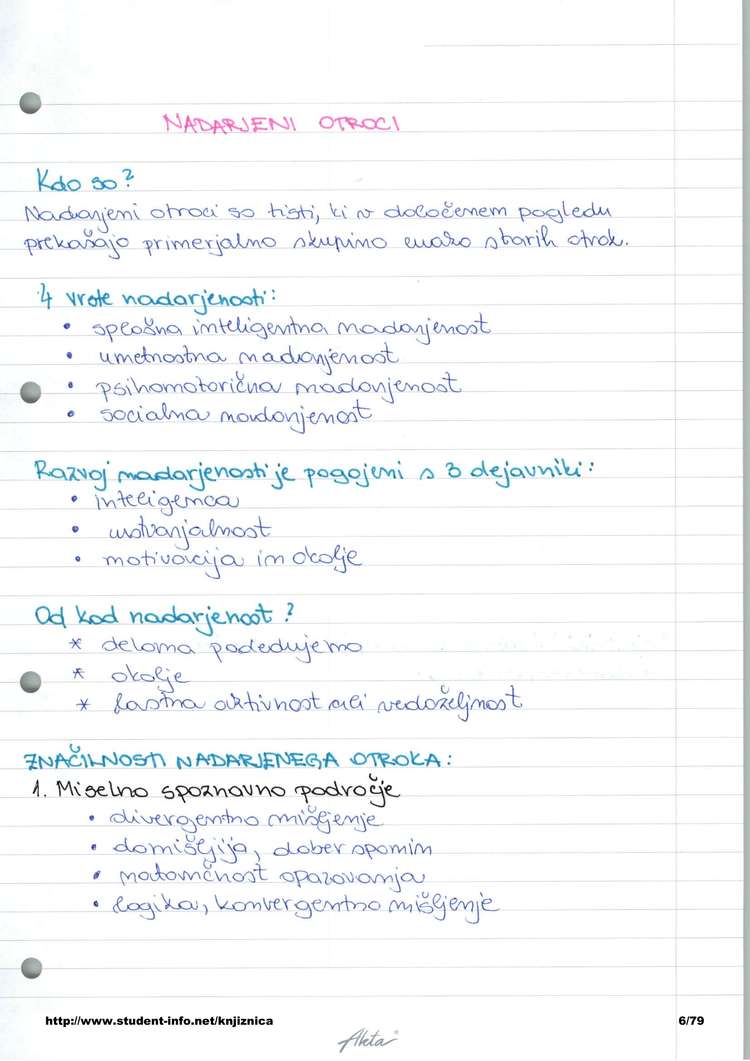 NADARJENI OTROCI
Kdo so?
Nadarjeni otroci so tisti, ki v določenem pogledu
prekašajo primerjalno skupino enako starih otrok.
4 vrste nadarjenosti:
• splošna inteligentna nadarjenost
• umetnostna nadarjenost
• psihomotorična nadarjenost
• socialna nardarjenost
Razvoj nadarjenosti je pogojeni s 3 dejavniki:
• inteligenca
• ustvarjalnost
• motivacija in okolje
Od kod nadarjenost?
* deloma podedujemo
* okolje
* lastna aktivnost ali vedoželjnost
ZNAČILNOSTI NADARJENEGA OTROKA:
1. Miselno spoznavno področje
• divergentno mišljenje
• domišljija, dober spomin
• natančnost opazovanja
• logika, konvergentno mišljenje
http://www.student-info.net/knjiznica
6/79
Akta